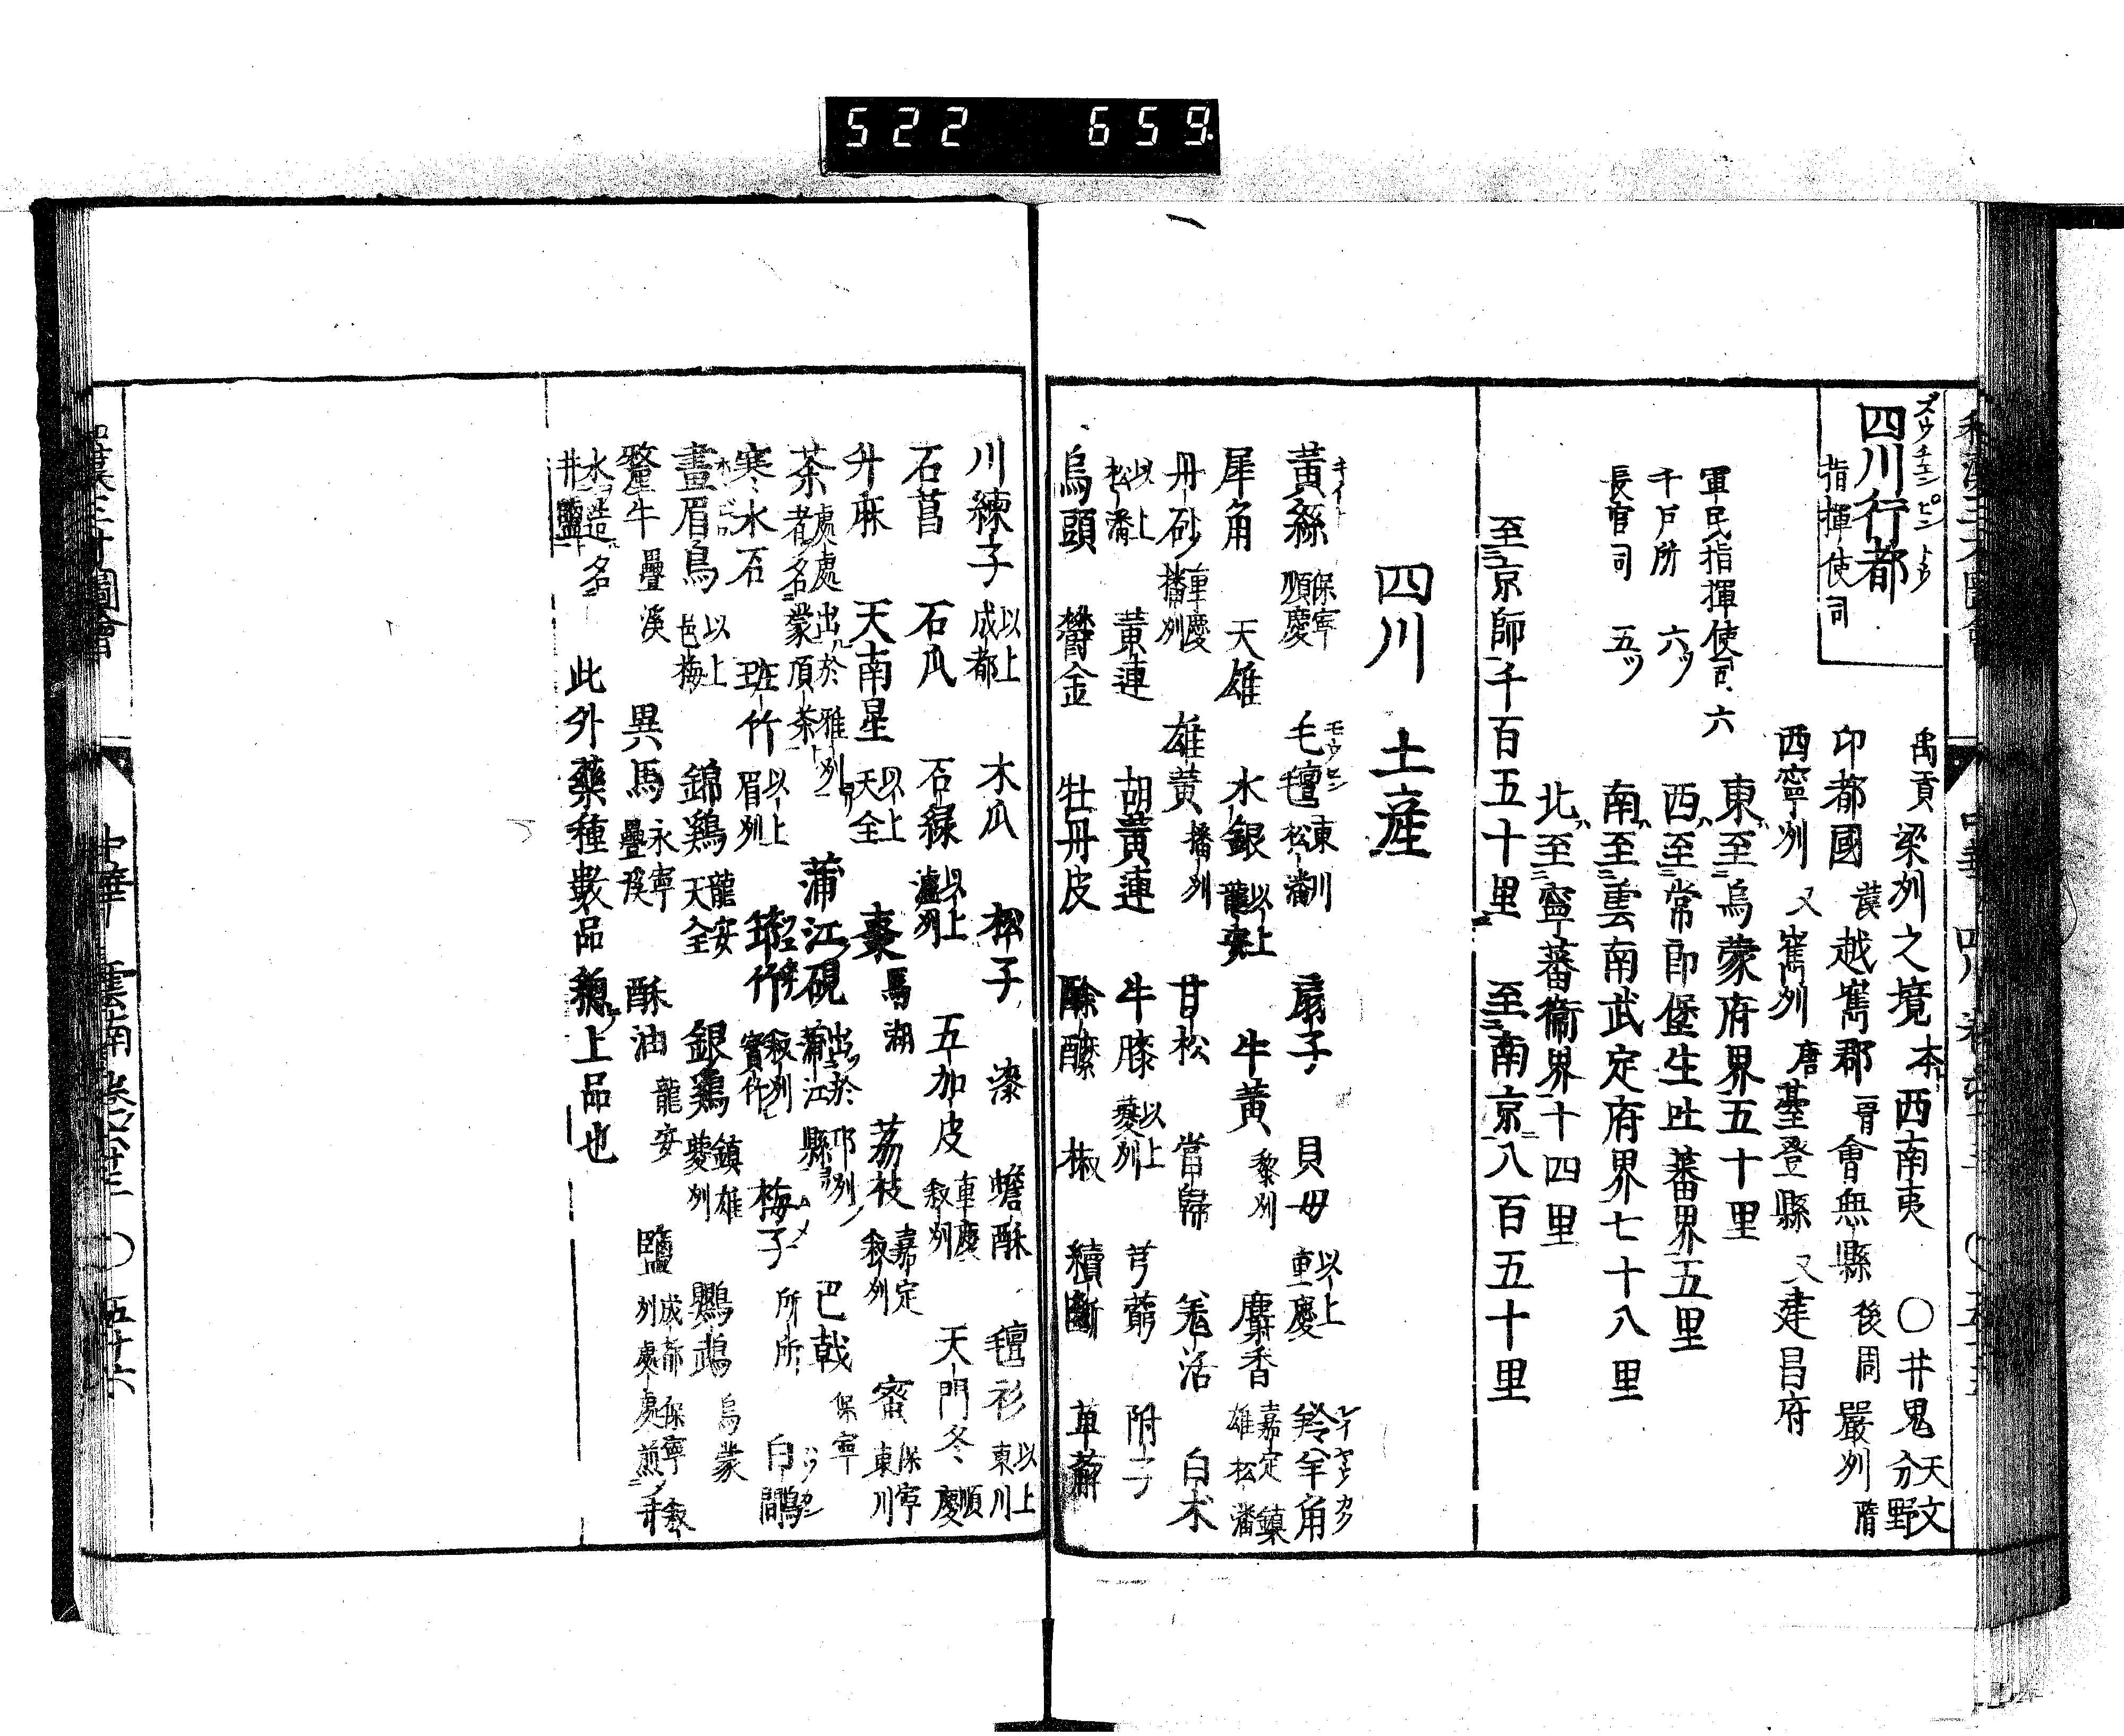 522 659.
四川行都
ズウチエンピントウ
指揮使司
禹貢梁州之境本西南夷 〇井鬼分野天文
印都國 漢越嶲郡 晋會無縣 後周嚴州 隋
西寧州 又嶲州 唐臺登縣 又建昌府
軍民指揮使司六
千戸所 六ツ
長官司 五ツ
東至烏蒙府界五十里
西至常郎堡生吐蕃界五里
南至雲南武定府界七十八里
北至寧蕃衞界十四里
至京師千百五十里 至南京八百五十里
四川 土産
黃絲 保寧順慶 毛氊 東川松潘 扇子 貝母 以上重慶 羚羊角
犀角 天雄 水銀 以上龍安 牛黃 黎州 麝香 嘉定鎮雄松潘
丹砂 重慶播州 雄黃 播州 甘松 當歸 羗活 白术
以上松潘 黃連 胡黃連 牛膝 以上夔州 芎藭 附子
烏頭 欝金 牡丹皮 酴醾 椒 續斷 萆薢
川練子 以上成都 木瓜 松子 漆 蟾酥 氊衫 以上東川
石菖 石瓜 石綠 以上瀘州 五加皮 重慶叙州 天門冬 順慶
升麻 天南星 以上天全 棗 馬湖 荔枝 嘉定叙州 蜜 保寧東川
茶 處處出於雅州者名蒙頂茶 蒲江硯 出於邛州蒲江縣 巴戟 保寧
寒水石 班竹 以上眉州 筇竹 叙州實竹 梅子 所所 白鷴
畫眉鳥 以上色梅 錦鶏 龍安天全 銀鶏 鎮雄夔州 鸚鵡 烏蒙
犛牛 疊溪 異馬 永寧疊溪 酥油 龍安 鹽 成都保寧叙州處處煎井
水造名井鹽 此外藥種數品總上品也
中華 雲南 〇 五十六